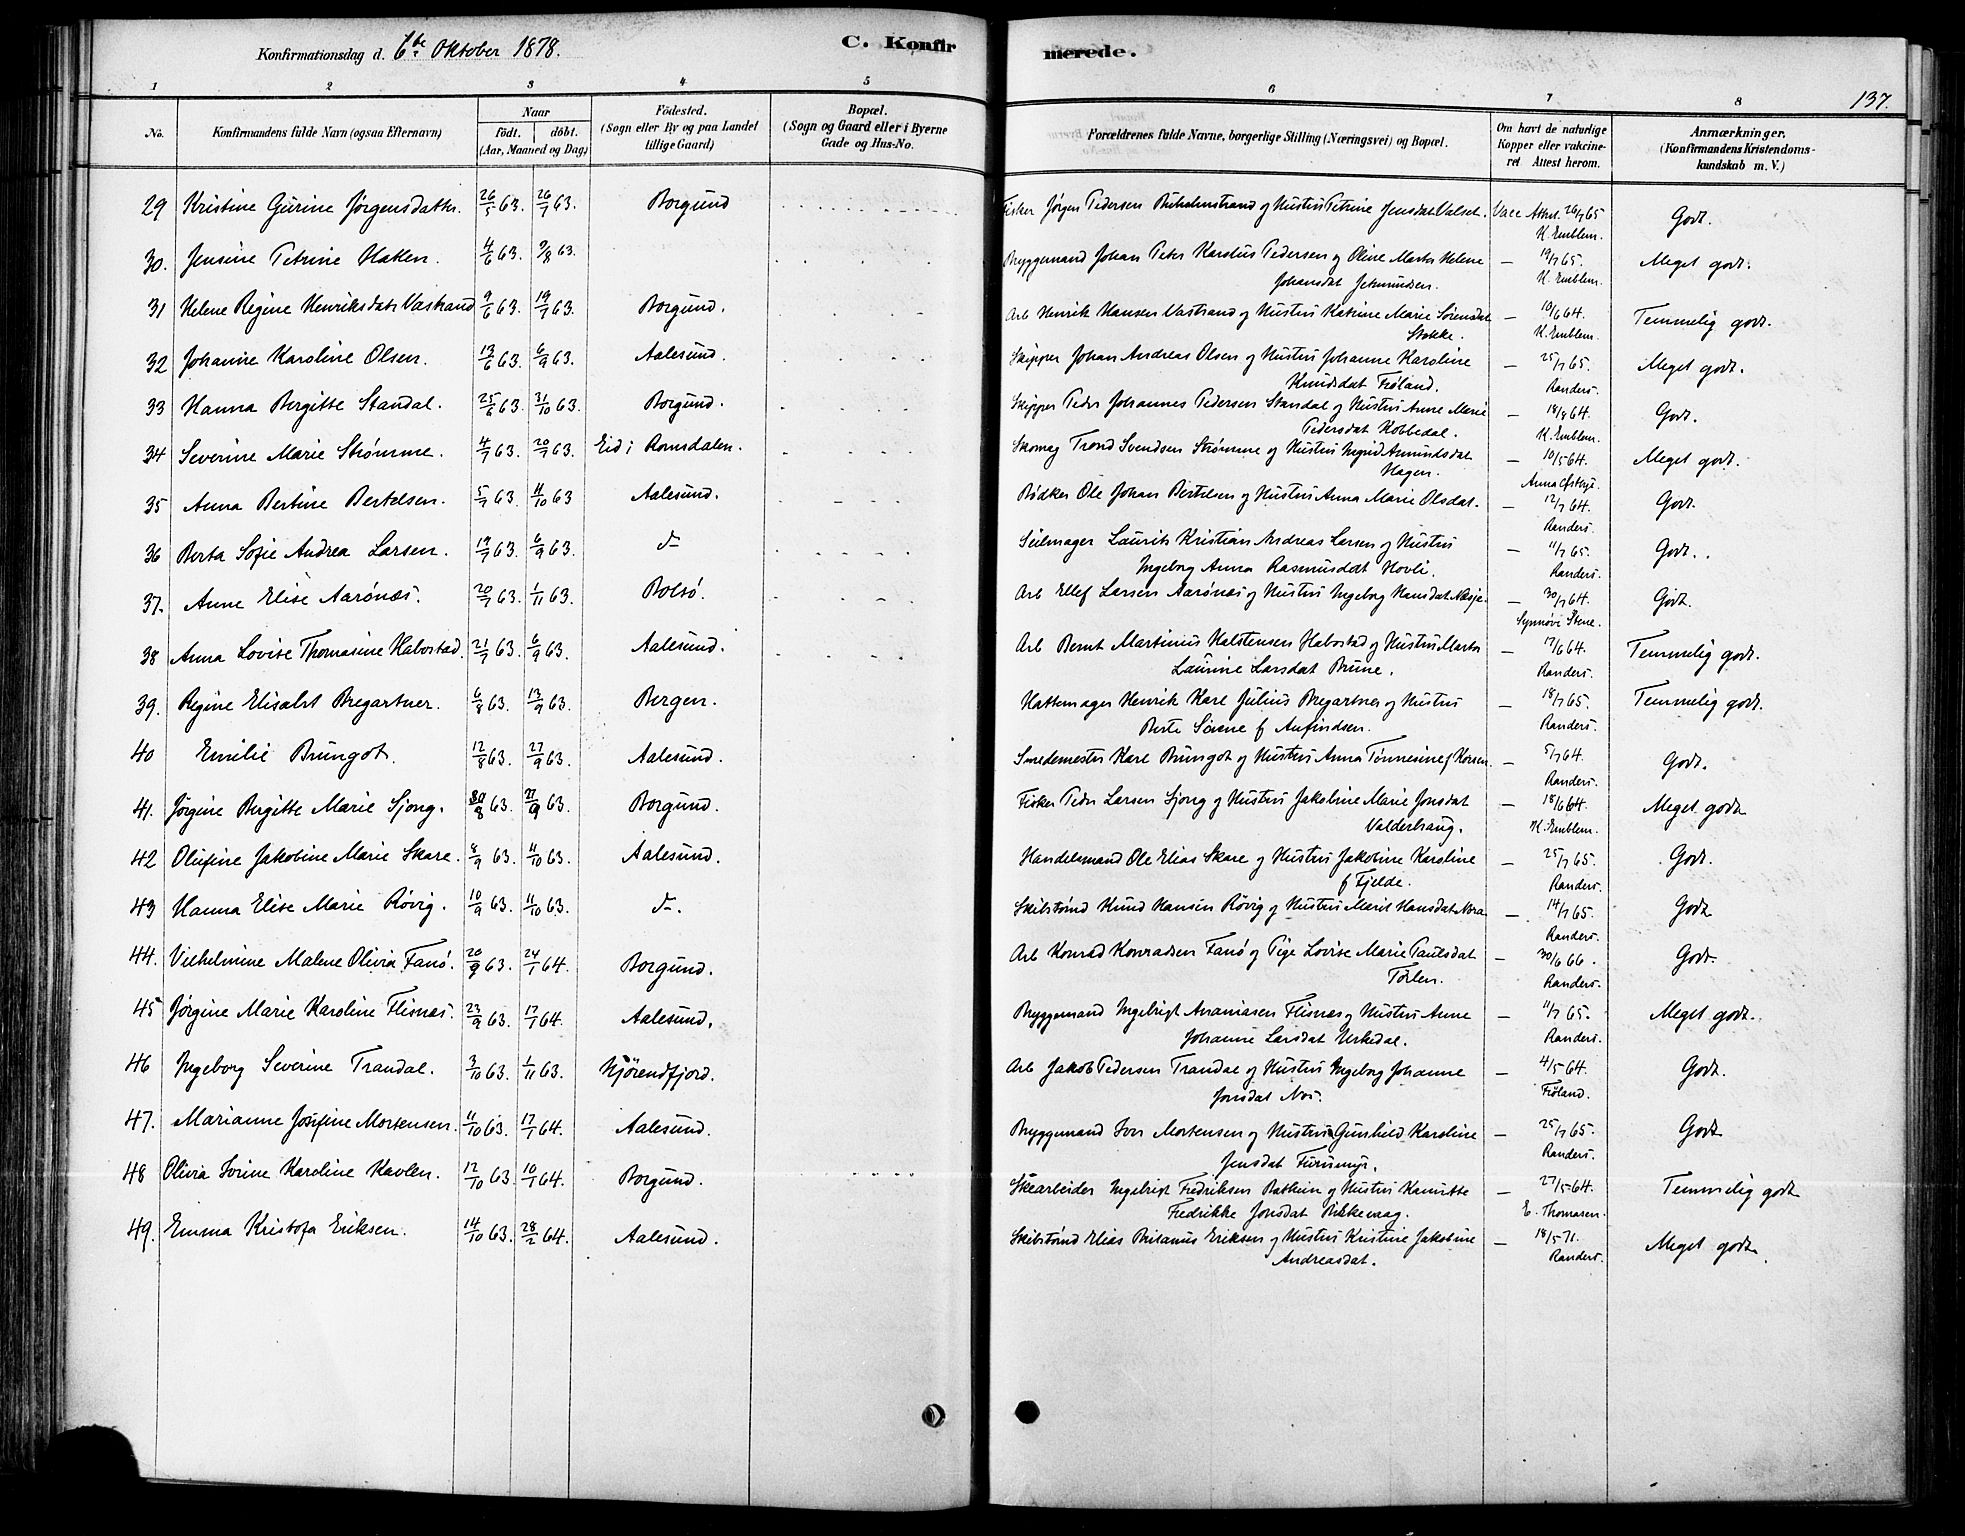 Konfirmationsdag d. 6te Oktober 1878.
C. Konfirmerede.
137.
1 2 3 4 5 6 7 8
No.
Konfirmandens fulde Navn (ogsaa Efternavn)
Naar
födt. döbt.
(Aar, Maaned og Dag)
Födested.
(Sogn eller By og paa Landet tillige Gaard)
Bopæl.
(Sogn og Gaard eller i Byerne Gade og Hus-No.
Forældrenes fulde Navne, borgerlige Stilling (Næringsvei) og Bopæl.
Om havt de naturlige Kopper eller vakcineret. Attest herom.
Anmærkninger.
(Konfirmandens Kristendomskundskab m. V.)
29 Kristine Gurine Jørgensdatter. 26/5 63. 26/7 63. Borgund Fisker Jørgen Pedersen og Hustru Petrine Jensdat Valset. Vacc Attest. 26/7 65 Godt.
K. Emblem.
30. Jensine Petrine Haken. 4/6 63. 9/8 63. Byggemand Johan Peter Karolus Pedersen og Oline Marta Helene — 19/7 65. Meget godt.
Johansdat Jetmundsen. K. Emblem.
31 Helene Regine Henriksdatr Vastrand 9/6 63. 19/7 63. Borgund. Arb Henrik Hansen Vastrand og Hustru Katrine Marie Sørensdat — 19/6 64. Temmelig godt.
Stokke. K. Emblem.
32 Johanne Karoline Olsen. 13/6 63. 6/9 63. Aalesund. Skipper Johan Andreas Olsen og Hustru Johanne Karoline — 25/7 65. Meget godt.
Knudsdat Frøland. Randers.
33 Hanna Bergitte Standal. 25/6 63. 31/10 63. Borgund. Skipper Peder Johannes Pedersen Standal og Hustru Anne Marie — 18/8 64. Godt.
Pedersdat Kobbedal. K. Emblem.
34 Severine Marie Strømme. 4/7 63. 20/9 63. Eid i Romsdalen. Skomag Trond Svendsen Strømme og Hustru Ingrid Amundsdat — 10/5 64. Meget godt.
Hagen.
35 Anna Bertine Bertelsen. 5/7 63. 11/10 63 Aalesund. Bødker Ole Johan Bertelsen og Hustru Anna Marie Olsdat. — 12/7 64. Godt.
Randers.
36 Berta Sofie Andrea Larsen. 19/7 63. 6/9 63. do Seilmager Laurits Kristian Andreas Larsen og Hustru — 11/7 65. Godt.
Ingeborg Anna Rasmusdat Hovli. Randers.
37. Anne Elise Aarønæs. 20/7 63. 1/11 63. Bolsø. Arb Ellef Larsen Aarønæs og Hustru Ingeborg Hansdat Næsje. — 30/7 64. Godt.
Synnøvi Stene.
38 Anna Lovise Thomasine Habostad. 21/7 63. 6/9 63. Aalesund. Arb Bernt Martinius Halstensen Habostad og Hustru Marta — 17/6 64. Temmelig godt.
Laurine Larsdat Brune. Randers.
39. Regine Elisabet Bregartner. 6/8 63. 13/9 63. Bergen. Hattemager Henrik Karl Julius Bregartner og Hustru — 18/7 65. Temmelig godt.
Berte Serine f Anfindsen. Randers.
40 Emilie Brungot. 12/8 63. 27/9 63. Aalesund. Smedemester Karl Brungot og Hustru Anna Tønnesine f Korsen. — 5/7 64. Godt.
Randers.
41. Jørgine Bergitte Marie Sjong. 30/8 63. 27/9 63. Borgund. Fisker Peder Larsen Sjong og Hustru Jakobine Marie Jonsdat — 18/6 64. Meget godt
Valderhaug. K. Emblem.
42 Olufine Jakobine Marie Skare. 8/9 63. 11/10 63. Aalesund. Handelsmand Ole Elias Skare og Hustru Jakobine Karoline — 25/7 65. Godt.
f Fjelde. Randers.
43 Hanna Elise Marie Røvig. 10/9 63. 11/10 63. do. Skibstømd Knud Hansen Røvig og Hustru Marit Hansdat Nora — 14/7 65. Godt
Randers.
44. Vilhelmine Malene Olivia Fanø. 20/9 63. 24/1 64. Borgund. Arb Konrad Konradsen Fanø og Pige Lovise Marie Paulsdat — 30/6 66. Godt.
Tørlen. Randers.
45 Jørgine Marie Karoline Flisnæs. 23/9 63. 17/1 64. Aalesund. Byggemand Ingebrigt Ananiasen Flisnæs og Hustru Anne — 11/7 65. Meget godt.
Johanne Larsdat Urkedal. Randers.
46 Ingeborg Severine Trandal. 3/10 63. 1/11 63. Hjørendfjord. Arb Jakob Pedersen Trandal og Hustru Ingeborg Johanne — 4/5 64. Godt.
Jonsdat Nos. Frøland.
47. Marianne Josefine Mortensen. 11/10 63. 17/1 64. Aalesund. Byggemand Iver Mortensen og Hustru Gunhild Karoline — 25/7 65. Godt
Jensdat Furumyr. Randers.
48 Olivia Sorine Karoline Kavlen. 12/10 63. 10/1 64. Borgund. Skoarbeider Ingebrigt Fredriksen Ratheim og Hustru — 27/5 64. Temmelig godt
Fredrikke Jonsdat Rikkevaag. E. Thomasen.
49. Emma Kristofa Eriksen. 14/10 63. 28/2 64. Aalesund. Skibstømd Elias Eriksen og Hustru Kristine Jakobine — 18/5 71. Meget godt.
Andreasdat. Randers.